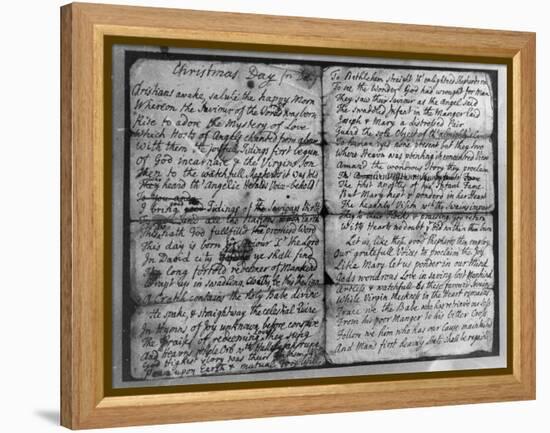 Christmas Day
Christians awake, salute the happy Morn
Whereon the Saviour of the World was born
Rise to adore the Mystery of Love
Which Hosts of Angels chanted from above
With them the joyful Tidings first begun
Of God incarnate & the Virgins Son
Then to the watchful Shepherds it was told
They heard th' Angelic Herald's Voice behold
To you
I bring good Tidings of the Saviours Birth
and all the Nations Earth
This hath God fullfilled the promis'd Word
This day is born Saviour the Lord
In David's city ye shall find
The long foretold redeemer of Mankind
Wrapt up in Swadling Cloaths be this the Sign
A Cratch contains the Holy Babe divine
He spake, & straightway the celestial Choir
In Hymns of Joy unknown before conspire
The Praises of redeeming Love they sung
And Heavns whole Orb with Hallelujahs rung
God's Highest Glory was their Anthem still
Peace upon Earth & mutual Good Will
To Bethlehem straight th' enlightned Shepherds ran
To see the Wonder God had wrought for Man
They saw their Saviour as the Angel said
The Swaddled Infant in the Manger laid
Joseph & Mary a distressed Pair
Guard the sole Object of th' Almighty's Care
To human eyes none present but they two
Where Heavn was
Amaz'd the wondrous Story they proclaim
The first Apostles of his Infant Fame
But Mary kept & ponder'd in her Heart
The heavnly Vision wch the Swains impart
They to their Flocks & praising God return
With Hearts no doubt yt did within them burn
Let us, like these good Shepherds then employ
Our gratefull Voices to proclaim the Joy
Like Mary, let us ponder in our Mind
Gods wondrous Love in saving lost Mankind
Artless & watchfull as these
While Virgin Meekness in the Heart remains
Trace we the Babe who has retriev'd our Loss
From his poor Manger to his bitter Cross
Follow we him who has our Cause maintaind
And Man's first heavnly State shall be regaind